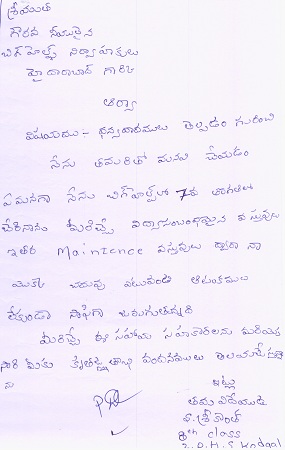 శ్రీయుత
గౌరవ నీయులైన
బిగ్‌హెల్ప్ నిర్వాహకులు
హైదారాబాద్ గారికి
ఆర్యా
విషయము :- ధన్యవాదములు తెల్పడం గురించి
నేను తమరితో మనవి చేయడం
ఏమనగా నేను బిగ్‌హెల్ప్‌లో 7వ తరగతిలో
చేరినాను మీరిచ్చే విద్యాసంబంధమైన వస్తువులు
ఇతర Maintence వస్తువులు ద్వారా నా
యొక్క చదువు ఎటువంటి ఆటంకములు
లేకుండా సాఫీగా జరుగుతున్నది
మీరిచ్చే ఈ సహాయ సహకారలను మరియొక్క
సారి మీకు కృతజ్ఞతాభి వందనములు తెలయచేస్తున్నా
ను
ఇట్లు
తమ విదేయుడు
శ్రీకాంత్
8th class
Z.P.H.S Kodgal